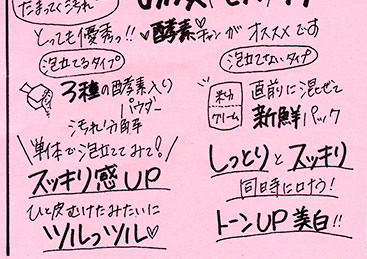 たまってく汚れ
とっても優秀っ!!♡酵素♡チャンがオススメです
泡立てるタイプ
3種の酵素入り
パウダー
汚れ分解
単体で泡立ててみて!
スッキリ感UP
ひと皮むけたみたいに
ツルっツル♡
泡立てないタイプ
粉
クリーム
直前に混ぜて
新鮮パック
しっとりとスッキリ
同時に叶う!
トーンUP美白!!